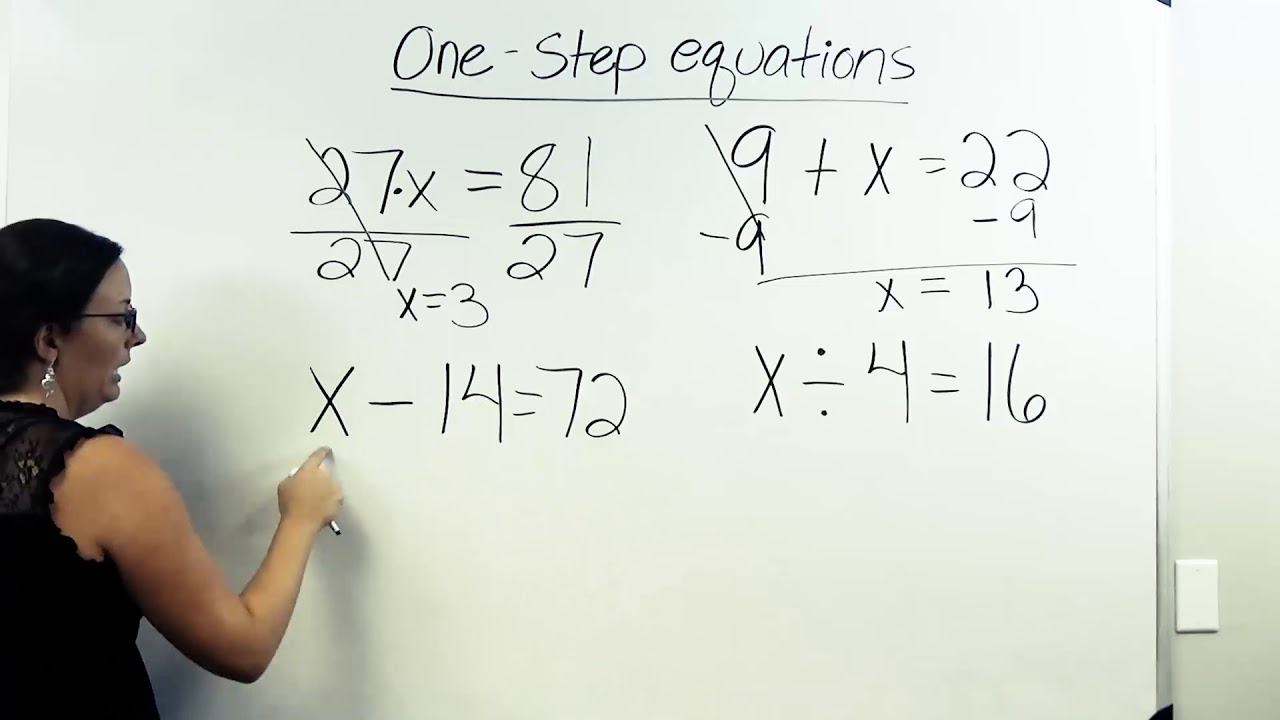 One-Step equations
27·x = 81
27 27
x=3
9 + x = 22
-9 -9
x = 13
x - 14 = 72
x ÷ 4 = 16